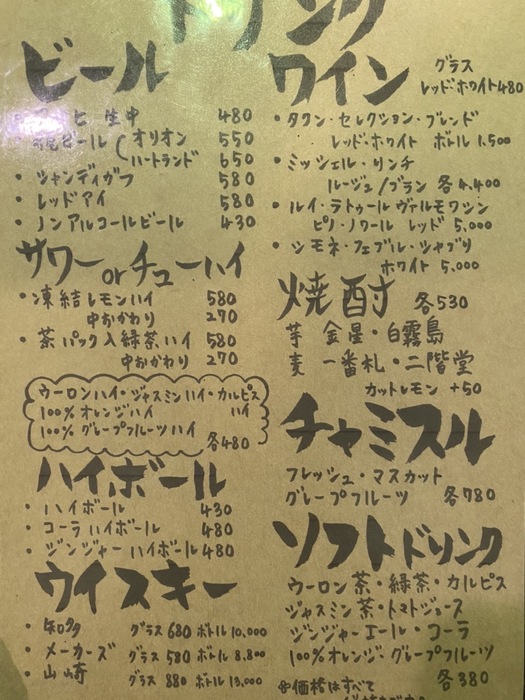 ドリンク
ビール
生中 480
ビール オリオン 550
ハートランド 650
・シャンディガフ 580
・レッドアイ 580
・ノンアルコールビール 430
サワーorチューハイ
・凍結レモンハイ 580
中おかわり 270
・茶パック入緑茶ハイ 580
中おかわり 270
ウーロンハイ・ジャスミンハイ・カルピス
ハイ
100% オレンジハイ
100% グレープフルーツハイ
各480
ハイボール
・ハイボール 430
・コーラハイボール 480
・ジンジャーハイボール 480
ウイスキー
・知多 グラス680 ボトル10,000
・メーカーズ グラス580 ボトル8,800
・山崎 グラス880 ボトル13,000
ワイン
グラス
レッド・ホワイト480
・タウン・セレクション・ブレンド
レッド・ホワイト ボトル1,500
・ミッシェル・リンチ
ルージュ/ブラン 各4,400
・ルイ・ラトゥール ヴァルモワシン
ピノ・ノワール レッド 5,000
・シモネ・フェブル・シャブリ
ホワイト 5,000
焼酎 各530
芋 金星・白霧島
麦 一番札・二階堂
カットレモン +50
チャミスル
フレッシュ・マスカット
グレープフルーツ 各780
ソフトドリンク
ウーロン茶・緑茶・カルピス
ジャスミン茶・トマトジュース
ジンジャーエール・コーラ
100%オレンジ・グレープフルーツ
各380
※価格はすべて